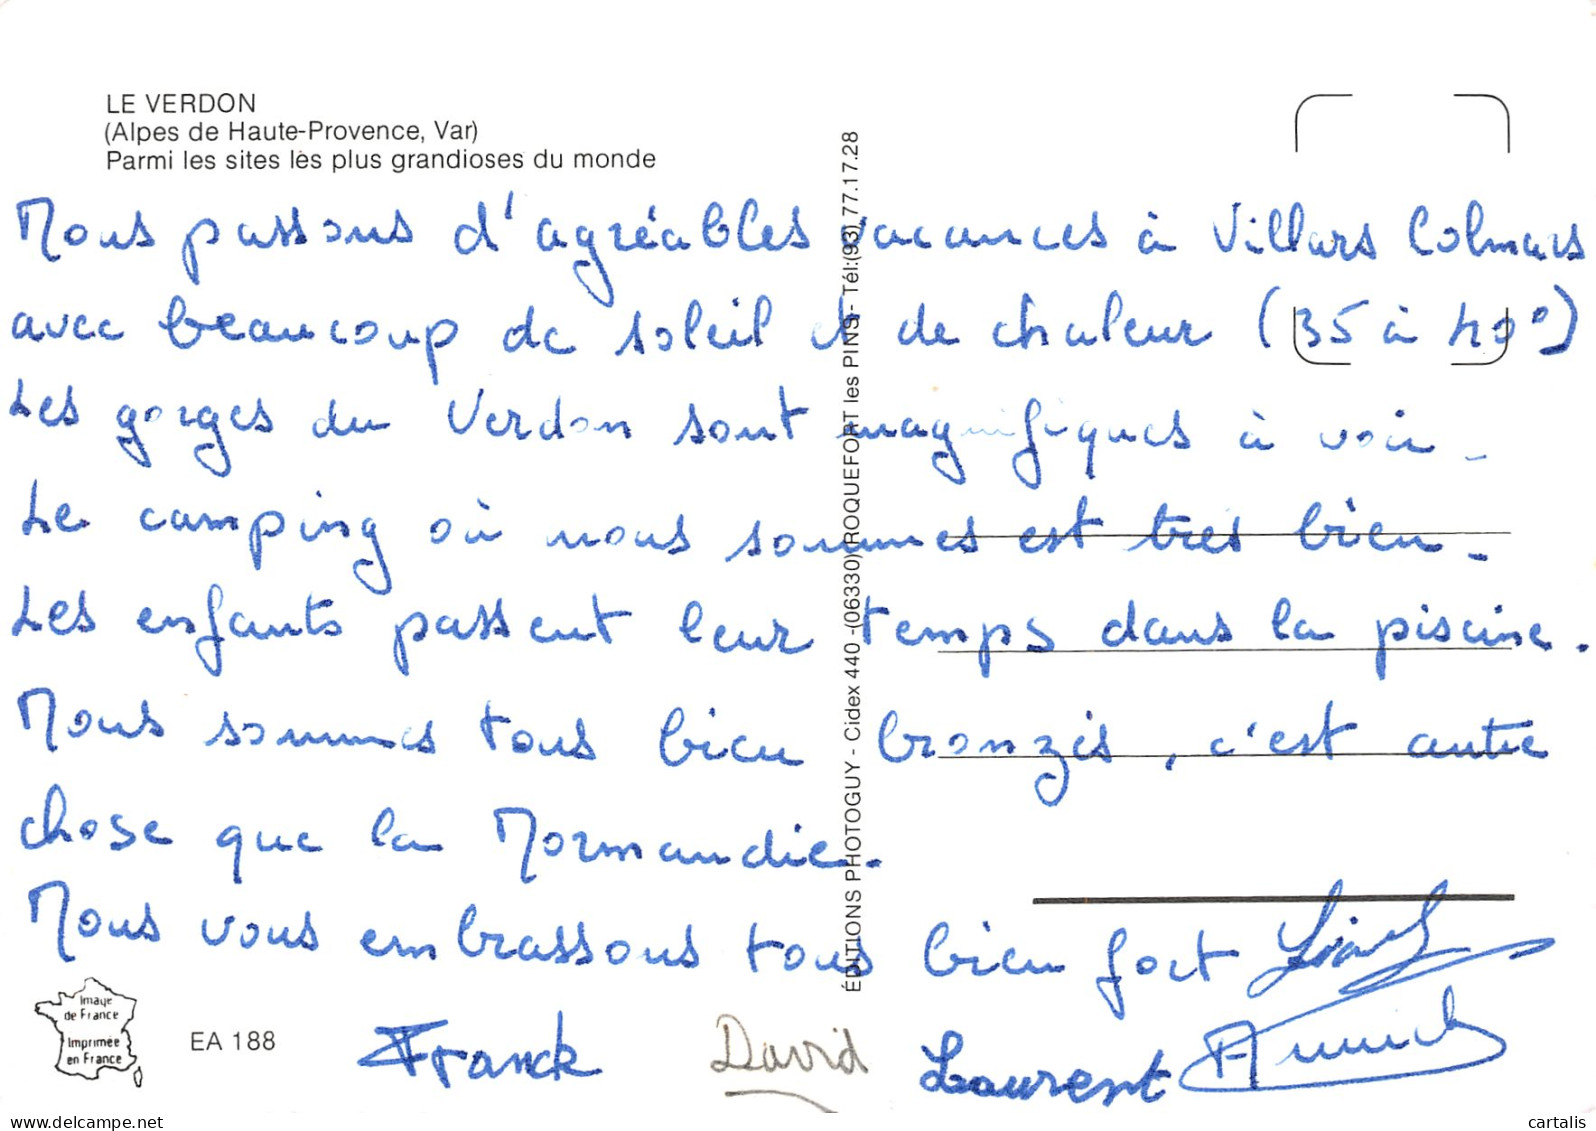 LE VERDON
(Alpes de Haute-Provence, Var)
Parmi les sites les plus grandioses du monde
Nous passons d'agréables vacances à Villars Colmars
avec beaucoup de soleil et de chaleur (35 à 40°)
Les gorges du Verdon sont magnifiques à voir.
Le camping où nous sommes est très bien.
Les enfants passent leur temps dans la piscine.
Nous sommes tous bien bronzés, c'est autre
chose que la Normandie.
Nous vous embrassons tous bien fort
Franck David Laurent
ÉDITIONS PHOTOGUY - Cidex 440 - (06330) ROQUEFORT les PINS - Tél: (93) 77.17.28
Image
de France
Imprimée
en France
EA 188
cartalis